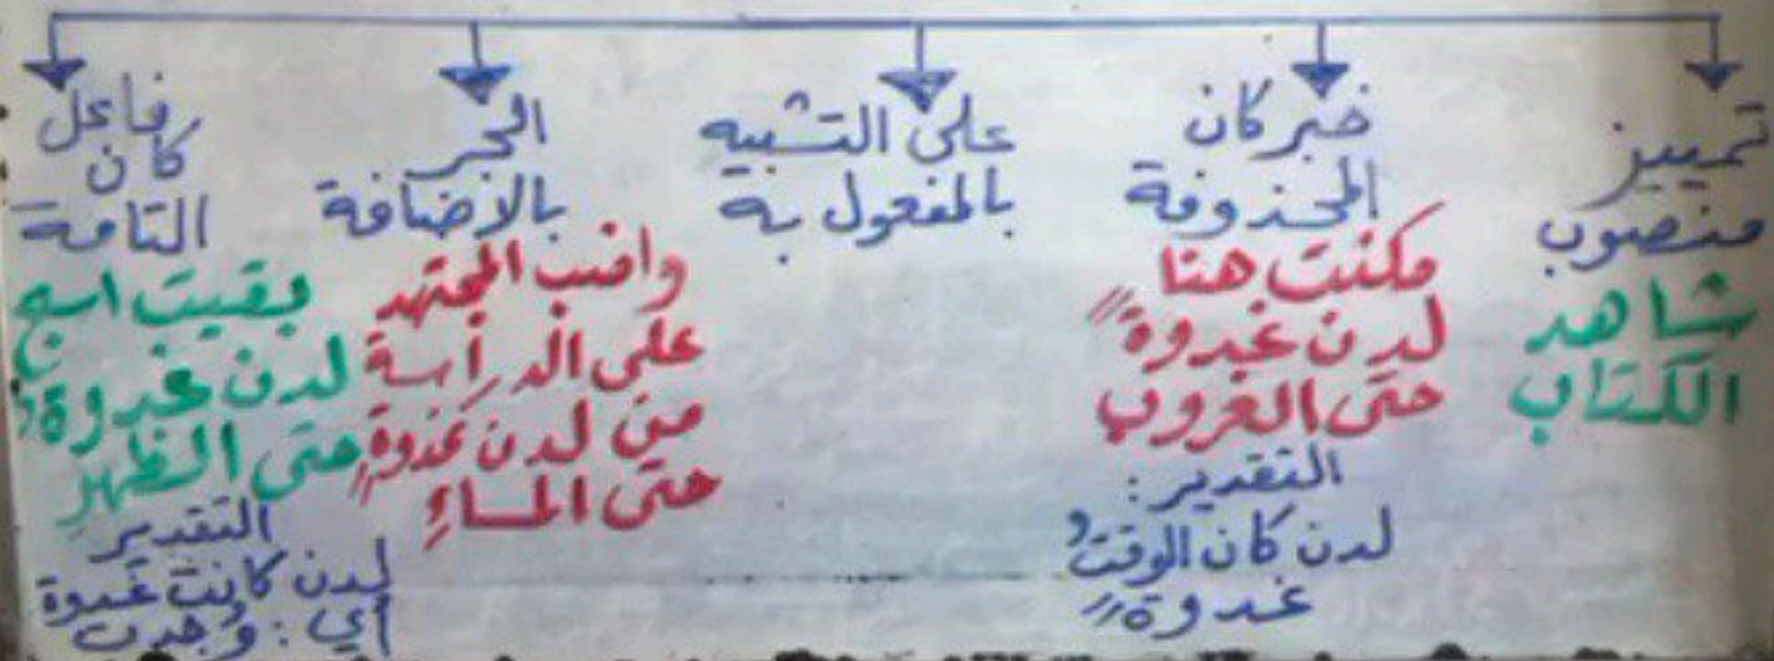 تمييز
منصوب
شاهد
الكتاب
خبر كان
المحذوفة
مكنت هنا
لدن غدوةً
حتى الغروب
التقدير:
لدن كان الوقتُ
غدوةً
على التشبيه
بالمفعول به
الجر
بالاضافة
واضب المجتهد
على الدراسة
من لدن غدوةٍ
حتى المساءِ
فاعل
كان
التامة
بقيت اسبح
لدن غدوةٌ
حتى الظهرِ
التقدير
لدن كانت غدوة
أي: وُجدت